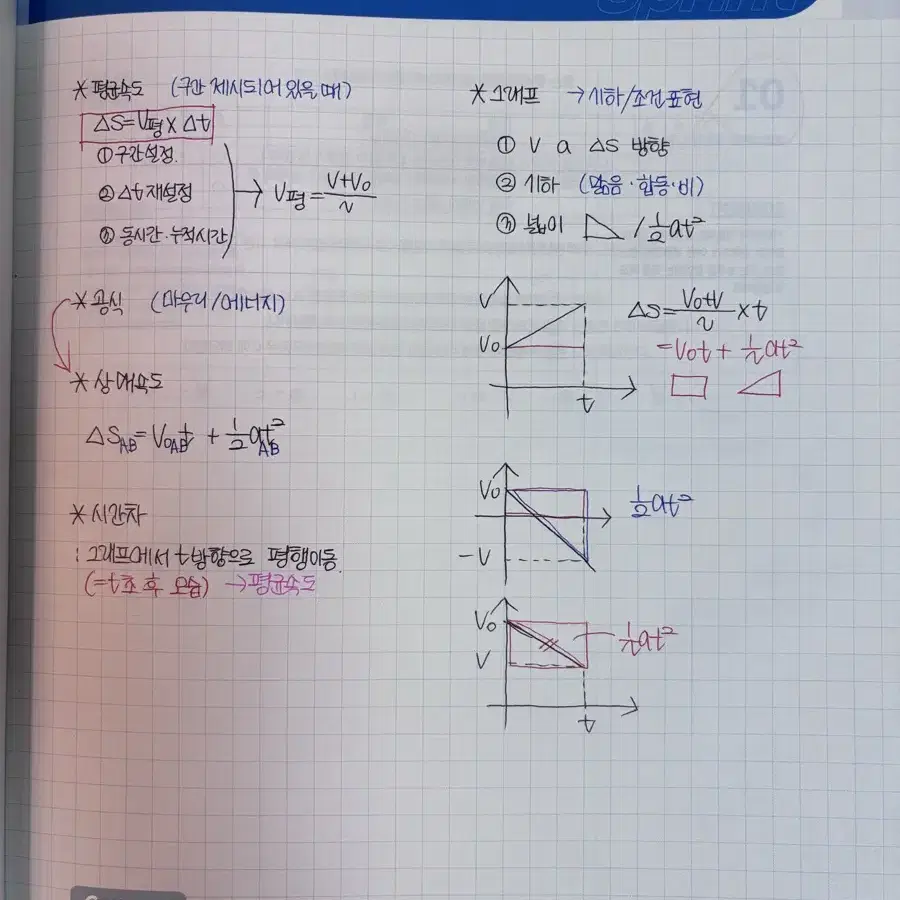 * 평균속도 (구간 제시되어 있을 때)
ΔS=V평×Δt
① 구간설정.
② Δt 재설정
③ 등시간·누적시간
→ V평=(V+V₀)/2
* 공식 (마무리/에너지)
* 상대속도
ΔS_AB=V₀_AB t + ½a_AB t²
* 시간차
: 그래프에서 t방향으로 평행이동.
(=t초 후 모습) →평균속도
* 그래프 →기하/조건표현
① V a ΔS 방향
② 기하 (닮음·합동·비)
③ 넓이 / ½at²
V
V₀
t
ΔS=(V₀+V)/2 ×t
=V₀t + ½at²
V₀
-V
½at²
V₀
V
t
½at²